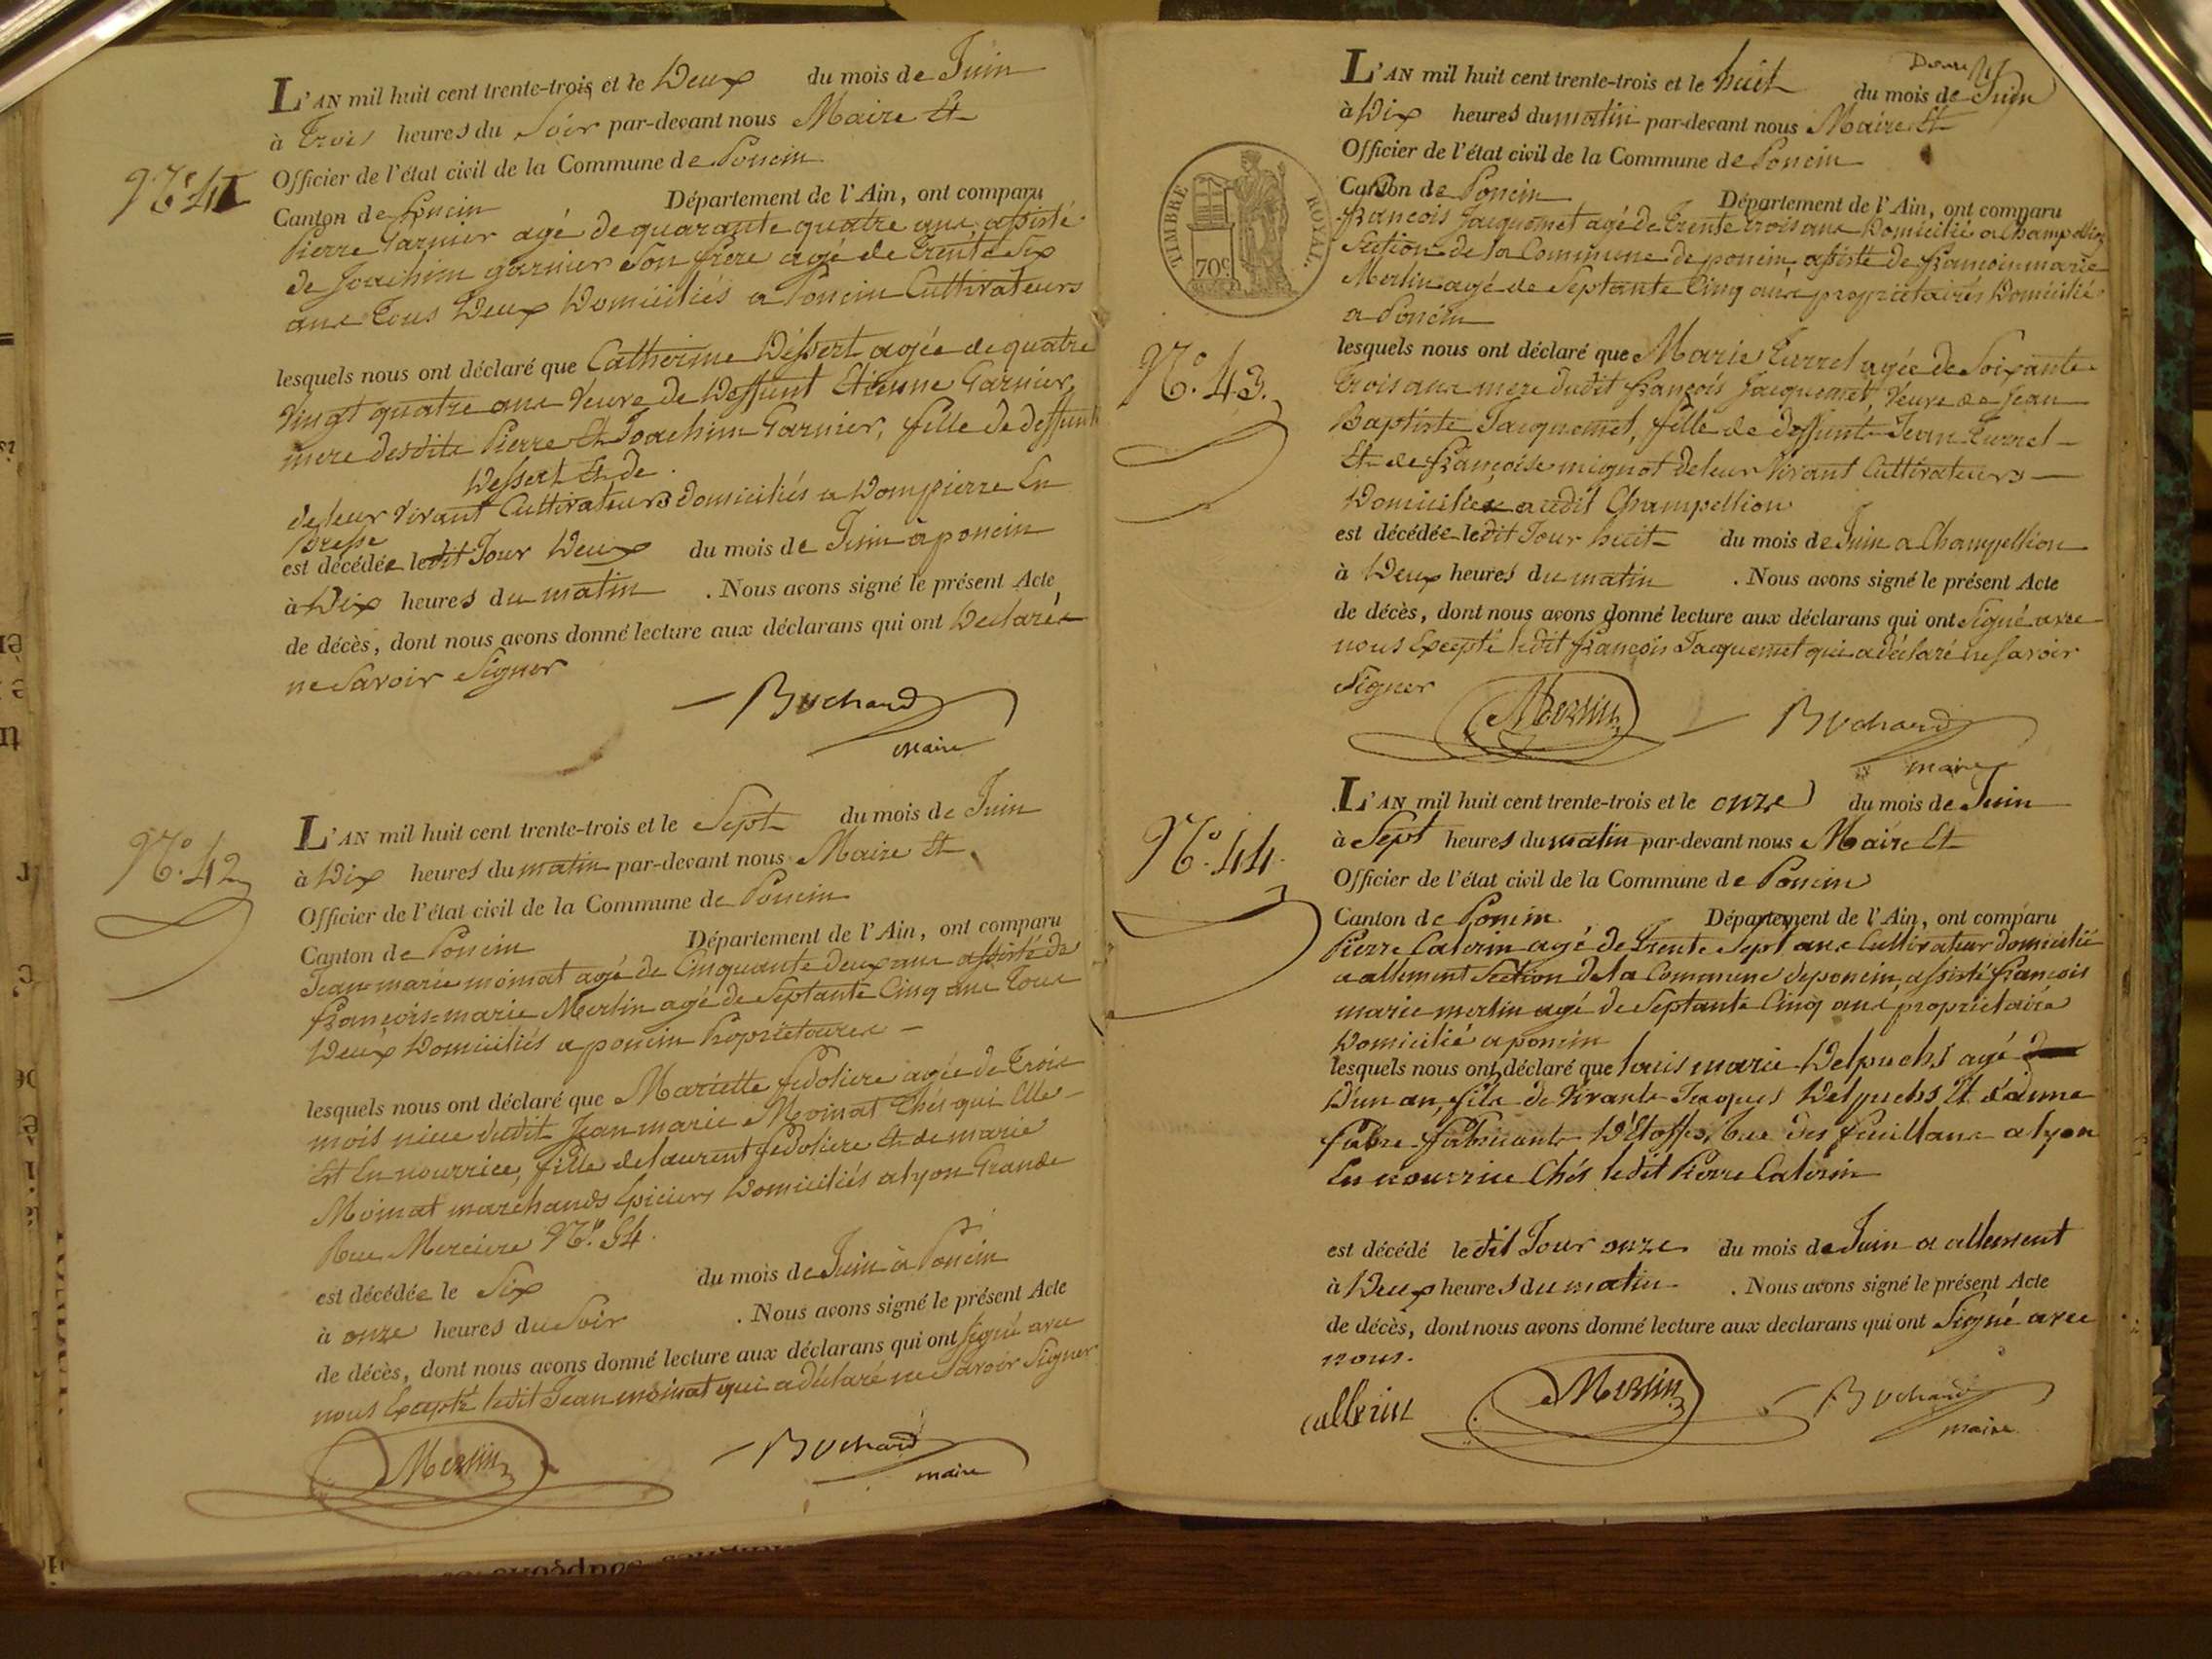 N° 41
L'AN mil huit cent trente-trois et le Deux du mois de Juin
à Trois heures du Soir par-devant nous Maire Et
Officier de l'état civil de la Commune de Poncin
Canton de Poncin Département de l'Ain, ont comparu
Pierre Garnier agé de quarante quatre ans, assisté
de Joachim garnier Son frère agé de Trente Six
ans Tous Deux Domiciliés a Poncin Cultivateurs
lesquels nous ont déclaré que Catherine Dessert agée de quatre
Vingt quatre ans Veuve de Deffunt Etienne Garnier,
mere desdits Pierre Et Joachim Garnier, fille de deffunts
Dessert Et de
de leur Vivant Cultivateurs domiciliés a Dompierre En
Bresse
est décédée ledit Jour Deux du mois de Juin à poncin
à Dix heures du matin . Nous avons signé le présent Acte
de décès, dont nous avons donné lecture aux déclarans qui ont Declarés
ne Savoir Signer
Bochard
maire
N° 42
L'AN mil huit cent trente-trois et le Sept du mois de Juin
à Dix heures du matin par-devant nous Maire Et
Officier de l'état civil de la Commune de Poncin
Canton de Poncin Département de l'Ain, ont comparu
Jean marie moinat agé de Cinquante deux ans assisté de
françois-marie Merlin agé de Septante Cinq ans Tous
Deux Domiciliés a poncin Propriétaires
lesquels nous ont déclaré que Mariette fedoliere agée de Trois
mois niece dudit Jean marie Moinat Chés qui Elle
Est En nourrice, fille de laurent fedoliere Et de marie
Moinat marchands Epiciers Domiciliés a lyon Grande
Rue Merciere N° 54.
est décédée le Six du mois de Juin à Poncin
à onze heures du Soir . Nous avons signé le présent Acte
de décès, dont nous avons donné lecture aux déclarans qui ont Signé avec
nous Excepté ledit Jean moinat qui a déclaré ne Savoir Signer
Merlin
Bochard
maire
L'AN mil huit cent trente-trois et le huit du mois de Juin
à Dix heures du matin par-devant nous Maire Et
Officier de l'état civil de la Commune de Poncin
TIMBRE ROYAL.
70c
Canton de Poncin Département de l'Ain, ont comparu
françois Jacquemet agé de Trente Trois ans Domicilié a Champellion
Section de la Commune de poncin, assisté de françois marie
Merlin agé de Septante Cinq ans proprietaires Domicilié
a Poncin
N° 43.
lesquels nous ont déclaré que Marie Turrel agée de Soixante
Trois ans mere dudit françois Jacquemet, Veuve de Jean
Baptiste Jacquemet, fille de deffunts Jean Turrel
Et de françoise mignot de leur Vivant Cultivateurs
Domiciliés audit Champellion
est décédée ledit Jour huit du mois de Juin a Champellion
à Deux heures du matin . Nous avons signé le présent Acte
de décès, dont nous avons donné lecture aux déclarans qui ont Signé avec
nous Excepté ledit françois Jacquemet qui a déclaré ne Savoir
Signer
Merlin
Bochard
maire
N° 44.
L'AN mil huit cent trente-trois et le onze du mois de Juin
à Sept heures du matin par-devant nous Maire Et
Officier de l'état civil de la Commune de Poncin
Canton de Poncin Département de l'Ain, ont comparu
Pierre Caterin agé de Trente Sept ans Cultivateur domicilié
a allement Section de la Commune de poncin, assisté françois
marie merlin agé de Septante Cinq ans proprietaire
Domicilié a poncin
lesquels nous ont déclaré que louis marie Delpuchs agé
D'un an, fils de Vivants Jacques Delpuchs Et d'anne
fabre fabricants D'Etoffes, Rue des feuillans a lyon
En nourrice Chés ledit Pierre Caterin
est décédé ledit Jour onze du mois de Juin a allement
à Deux heures du matin . Nous avons signé le présent Acte
de décès, dont nous avons donné lecture aux declarans qui ont Signé avec
nous.
Merlin
Bochard
maire